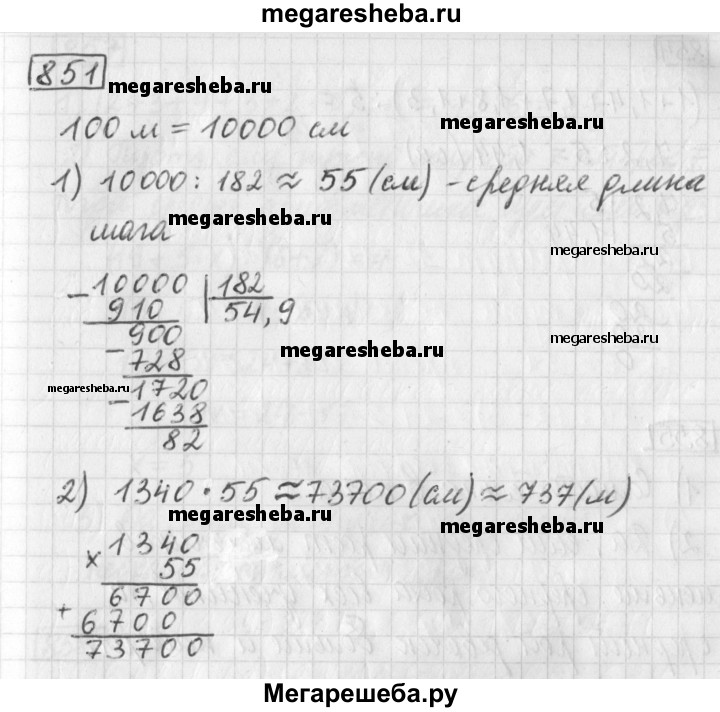 megaresheba.ru
851
megaresheba.ru
100 м = 10000 см
megaresheba.ru
1) 10000 : 182 ≈ 55 (см) - средняя длина
шага
megaresheba.ru
megaresheba.ru
- 10000 | 182
910 54,9
900
megaresheba.ru
megaresheba.ru
- 728
megaresheba.ru
- 1720
1638
82
2) 1340 · 55 ≈ 73700 (см) ≈ 737 (м)
megaresheba.ru
megaresheba.ru
× 1340
55
6700
+ 6700
73700
Мегарешеба.ру